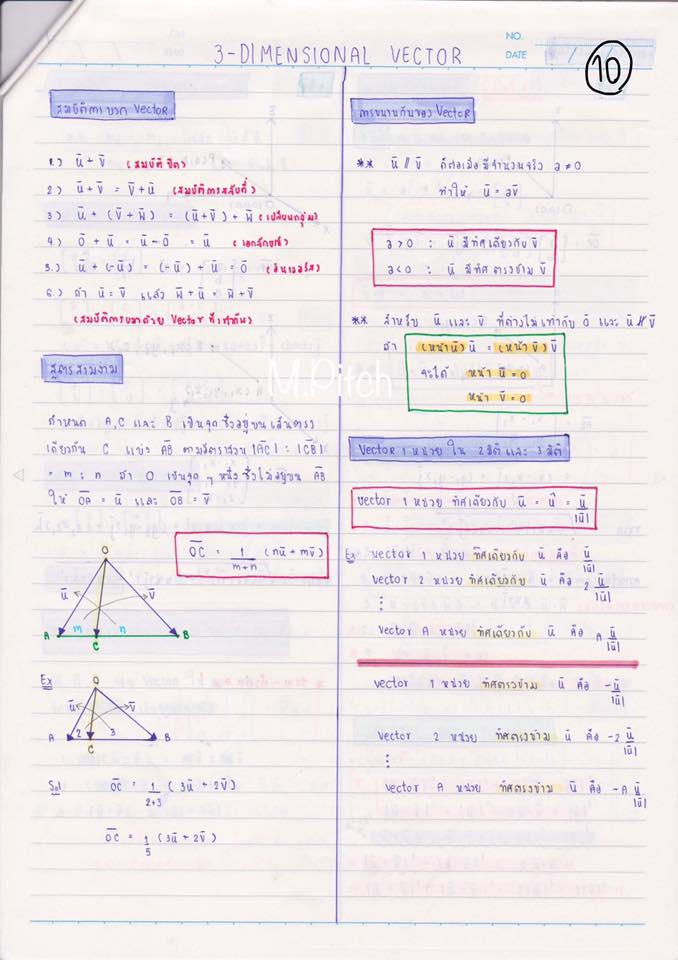 3-DIMENSIONAL VECTOR
NO.
DATE / /
10
สมบัติการบวก Vector
1.) ū + v̄ (สมบัติปิด)
2) ū + v̄ = v̄ + ū (สมบัติการสลับที่)
3) ū + (v̄ + w̄) = (ū + v̄) + w̄ (เปลี่ยนกลุ่ม)
4) ō + ū = ū + ō = ū (เอกลักษณ์)
5.) ū + (-ū) = (-ū) + ū = ō (อินเวอร์ส)
6.) ถ้า ū = v̄ แล้ว w̄ + ū = w̄ + v̄
(สมบัติการบวกด้วย Vector ที่เท่ากัน)
สูตรสามง่าม
กำหนด A, C และ B เป็นจุดซึ่งอยู่บนเส้นตรง
เดียวกัน C แบ่ง AB ตามอัตราส่วน |AC| : |CB|
= m : n ถ้า O เป็นจุดๆ หนึ่งซึ่งไม่อยู่บน AB
ให้ OA = ū และ OB = v̄
OC = 1/(m+n) (nū + mv̄)
O
ū v̄
m n
A C B
Ex
O
ū v̄
2 3
A C B
Sol OC = 1/(2+3) (3ū + 2v̄)
OC = 1/5 (3ū + 2v̄)
การขนานกันของ Vector
** ū // v̄ ก็ต่อเมื่อ มีจำนวนจริง a ≠ 0
ทำให้ ū = av̄
a > 0 : ū มีทิศเดียวกับ v̄
a < 0 : ū มีทิศตรงข้าม v̄
** สำหรับ ū และ v̄ ที่ต่างไม่เท่ากับ ō และ ū ∦ v̄
ถ้า (หน้า ū) ū = (หน้า v̄) v̄
จะได้ หน้า ū = 0
หน้า v̄ = 0
M.Pitch
Vector 1 หน่วย ใน 2 มิติ และ 3 มิติ
vector 1 หน่วย ทิศเดียวกับ ū = û = ū/|ū|
Ex vector 1 หน่วย ทิศเดียวกับ ū คือ ū/|ū|
vector 2 หน่วย ทิศเดียวกับ ū คือ 2 ū/|ū|
⋮
vector A หน่วย ทิศเดียวกับ ū คือ A ū/|ū|
vector 1 หน่วย ทิศตรงข้าม ū คือ -ū/|ū|
vector 2 หน่วย ทิศตรงข้าม ū คือ -2 ū/|ū|
⋮
vector A หน่วย ทิศตรงข้าม ū คือ -A ū/|ū|